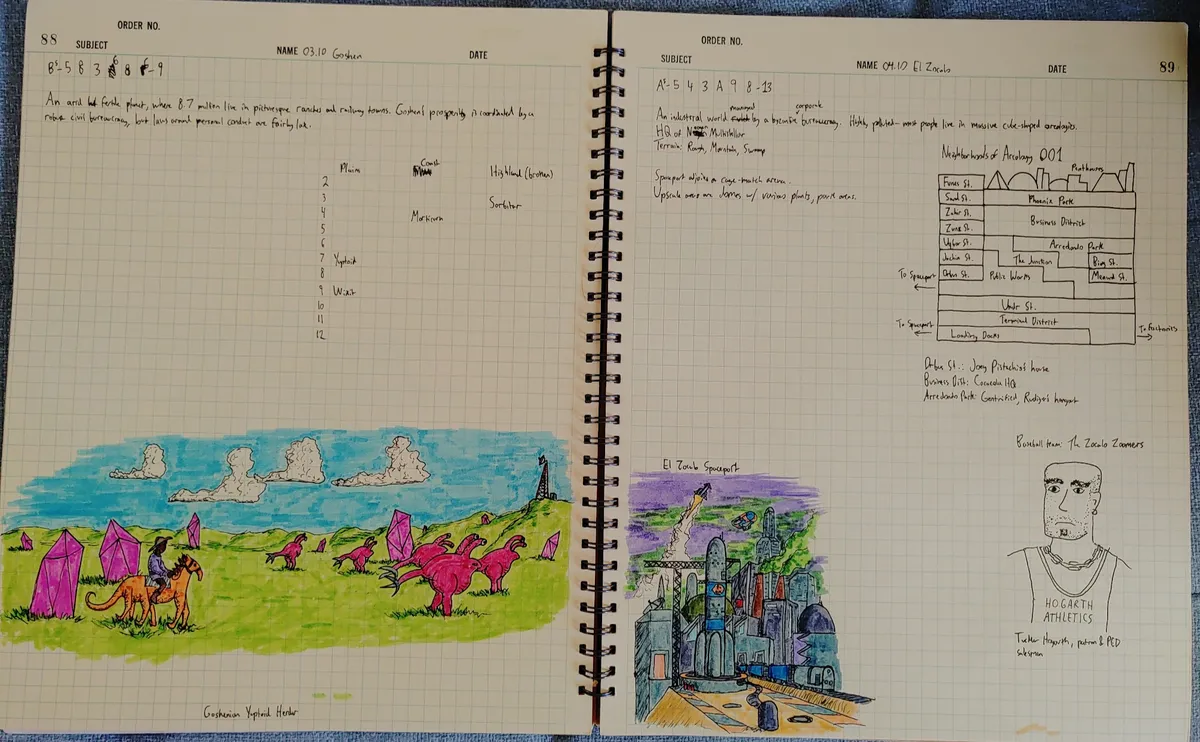 ORDER NO.
88
SUBJECT
NAME 03.10 Goshen
DATE
B⁵-5 8 3 8 6-9
An arid but fertile planet, where 8.7 million live in picturesque ranches and railway towns. Goshen's prosperity is coordinated by a
robust civil bureaucracy, but laws around personal conduct are fairly lax.
Plains
Coast
Highland (broken)
2
3
Sorbitor
4
Morticorn
5
6
7 Yuptoid
8
9
10
11
12
Goshenian Yuptoid Herder
ORDER NO.
SUBJECT
NAME 04.10 El Zocalo
DATE
89
A⁵-5 4 3 A 9 8-13
An industrial world managed by a byzantine corporate bureaucracy. Highly polluted- most people live in massive cube-shaped arcologies.
HQ of Multistellar
Terrain: Rough, Mountain, Swamp
Spaceport adjoins a cage-match arena.
Upscale areas are domes w/ various plants, park areas.
Neighborhoods of Arcology 001
Penthouses
Funes St.
Phoenix Park
Zahir St.
Business District
Zuna St.
Uqbar St.
Arredondo Park
Jachin St.
The Junction
Bing St.
To Spaceport
Orbun St.
Public Works
Undr St.
Terminal District
To Spaceport
Loading Docks
To Factories
Orbun St.: Joey Pistachio's house
Business Dist: Cocacola HQ
Arredondo Park: Gentrified, Rudiyo's hangout
Baseball team: The Zocalo Zoomers
El Zocalo Spaceport
HOGARTH
ATHLETICS
Tucker Hogarth, patron & PED
salesman